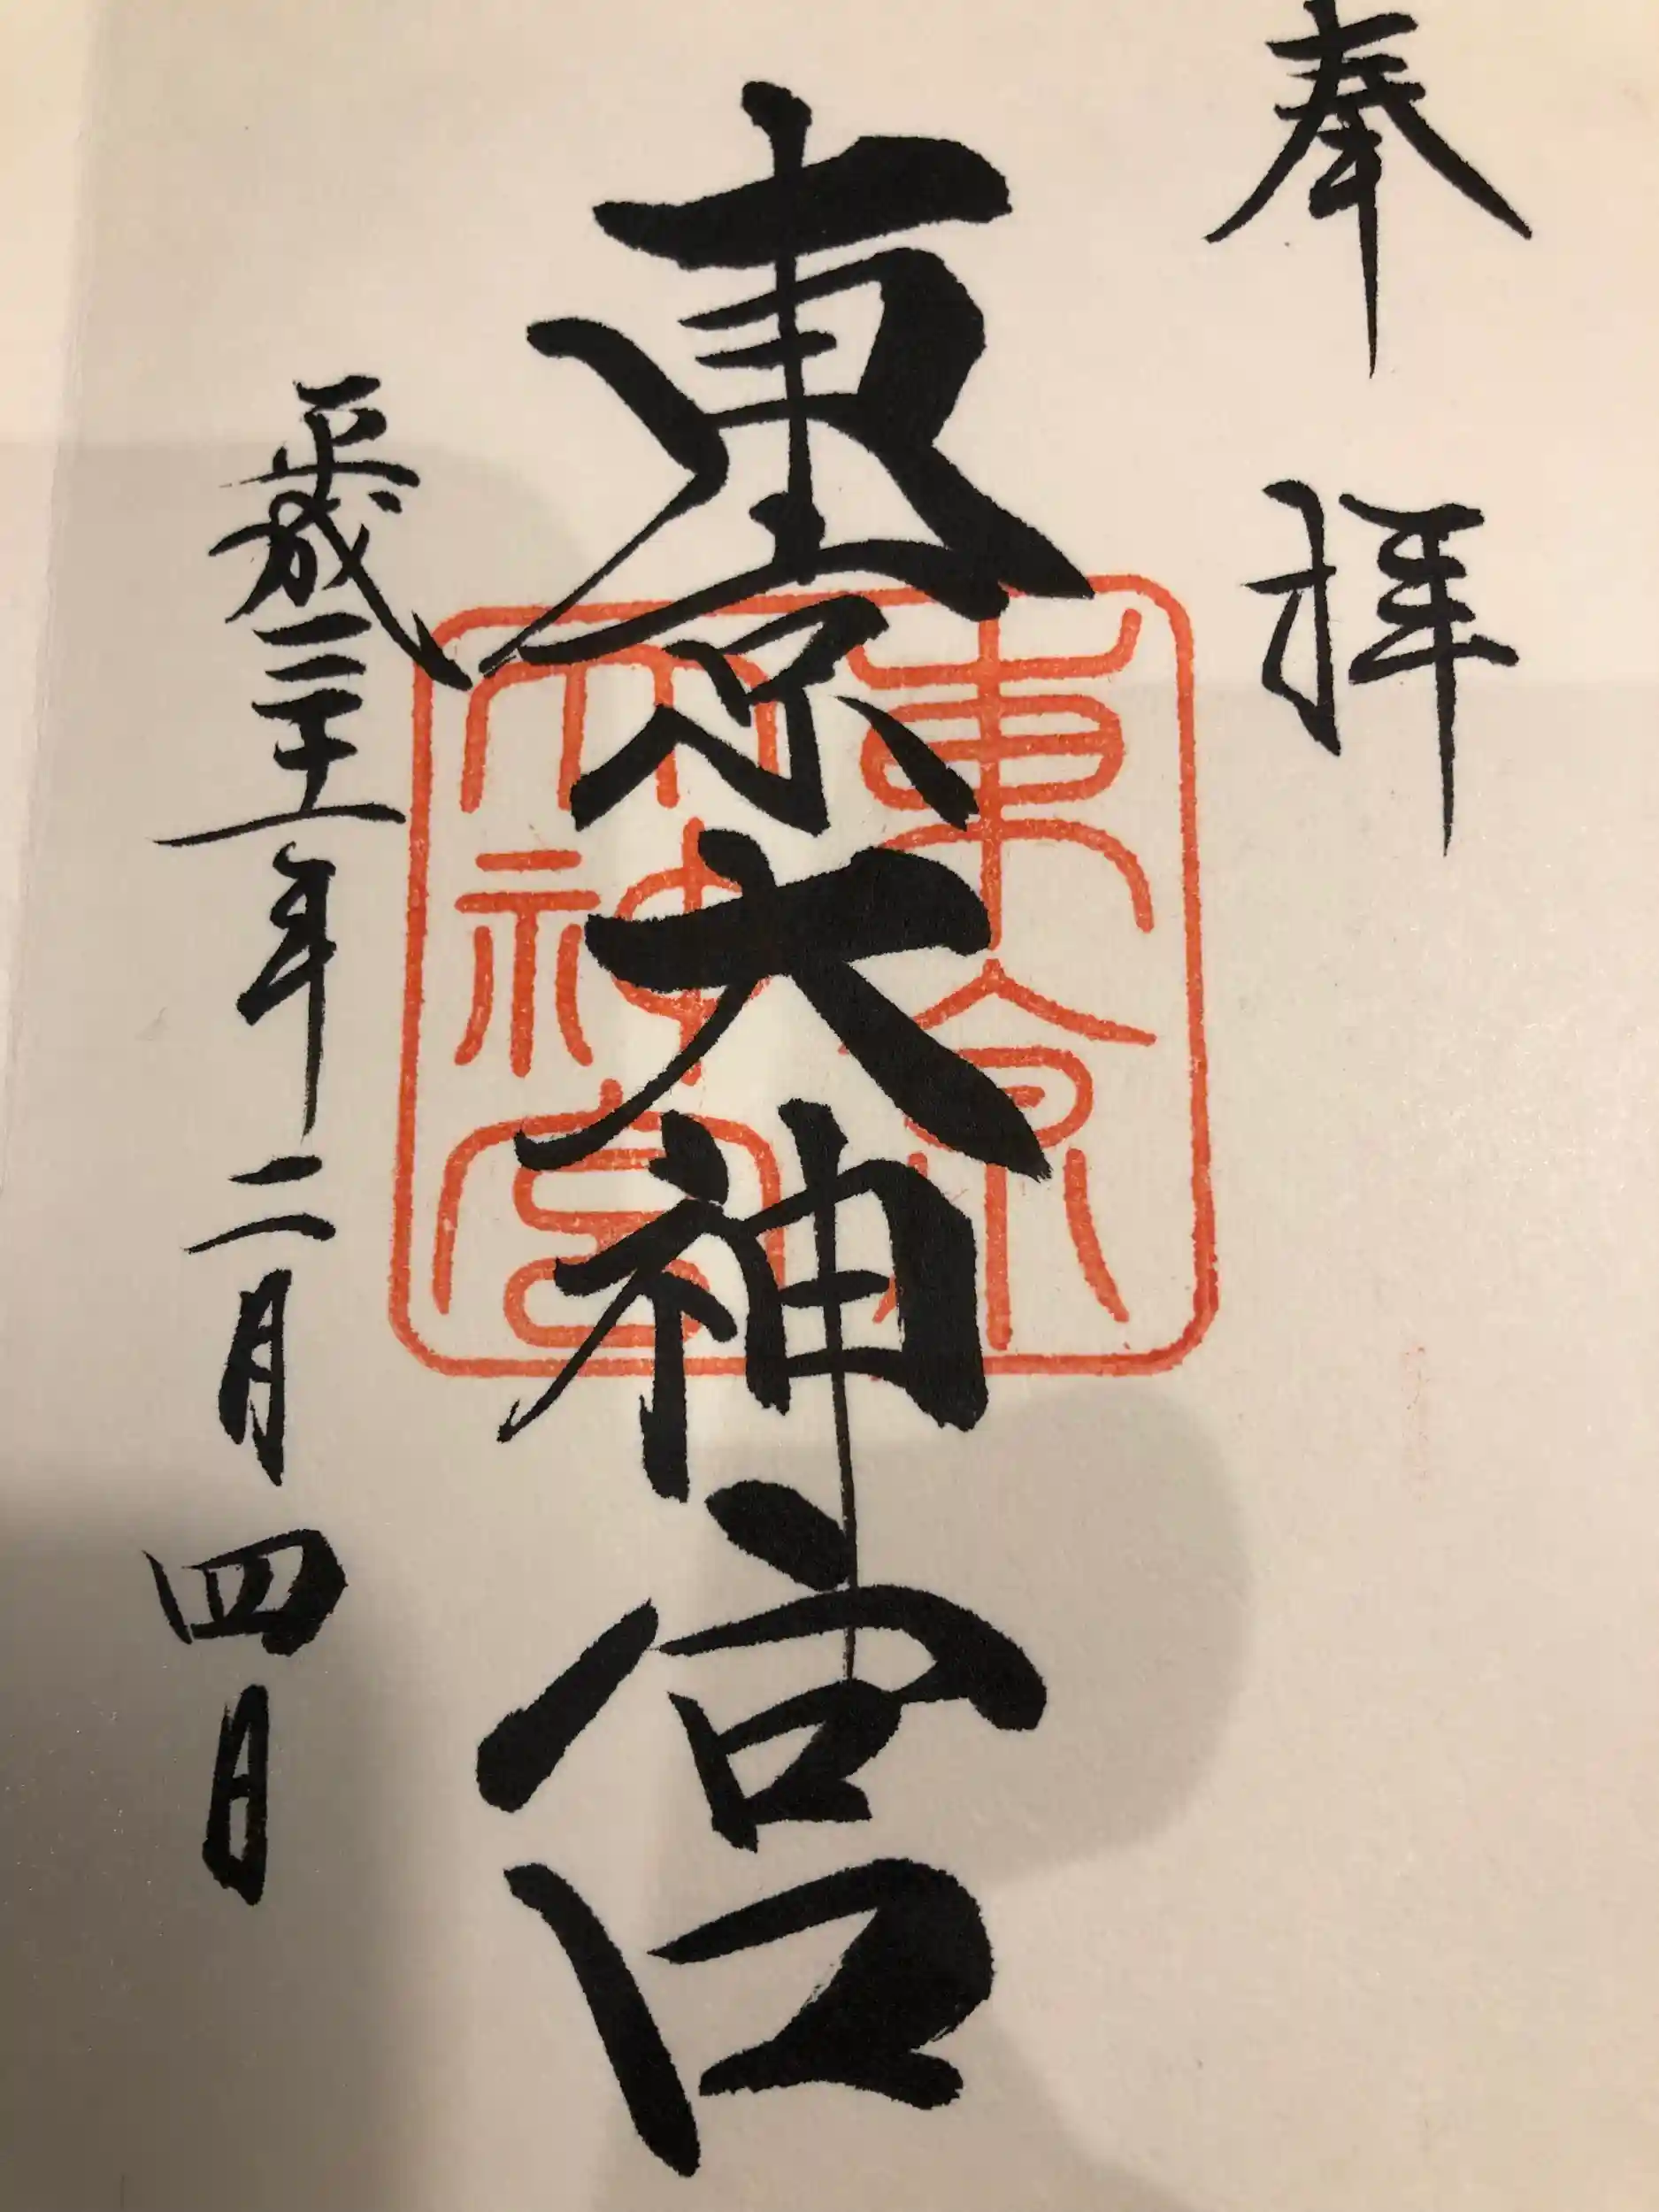 奉拝
東京大神宮
平成三十一年二月四日
東京
大神宮